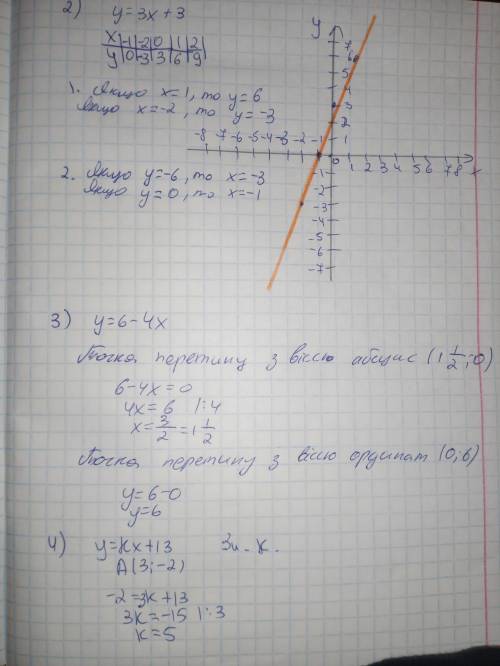 2) y=3x+3
x -1 -2 0 1 2
y 0 -3 3 6 9
1. Якщо x=1, то y=6
Якщо x=-2, то y=-3
2. Якщо y=-6, то x=-3
Якщо y=0, то x=-1
y
7
6
5
3
2
1
-8 -7 -6 -5 -4 -3 -2 -1 0 1 2 3 4 5 6 7 8 x
-1
-2
-3
-4
-5
-6
-7
3) y=6-4x
Точка перетину з віссю абсцис (1 1/2; 0)
6-4x=0
4x=6 |:4
x=3/2=1 1/2
Точка перетину з віссю ординат (0; 6)
y=6-0
y=6
4) y=kx+13 Зн. - k.
A(3; -2)
-2=3k+13
3k=-15 |:3
k=5